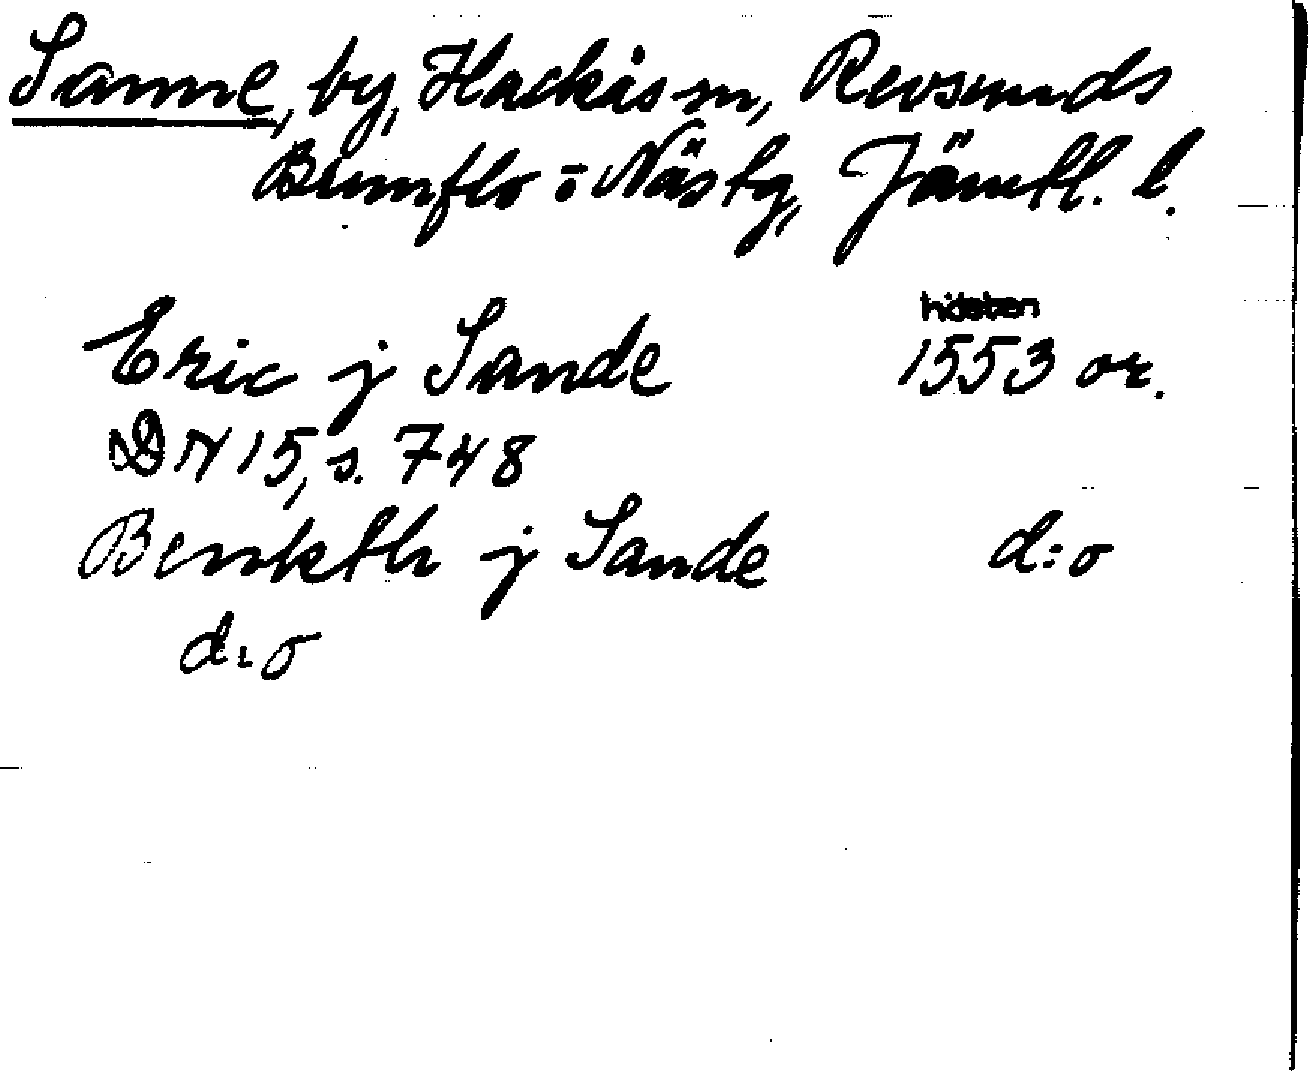 Sanne, by, Hackås sn, Revsunds
Brunflo o Näs tg, Jämtl. l.
hidsten
Eric j Sande 1553 or.
DN 15, s. 748
Benkth j Sande d:o
d:o